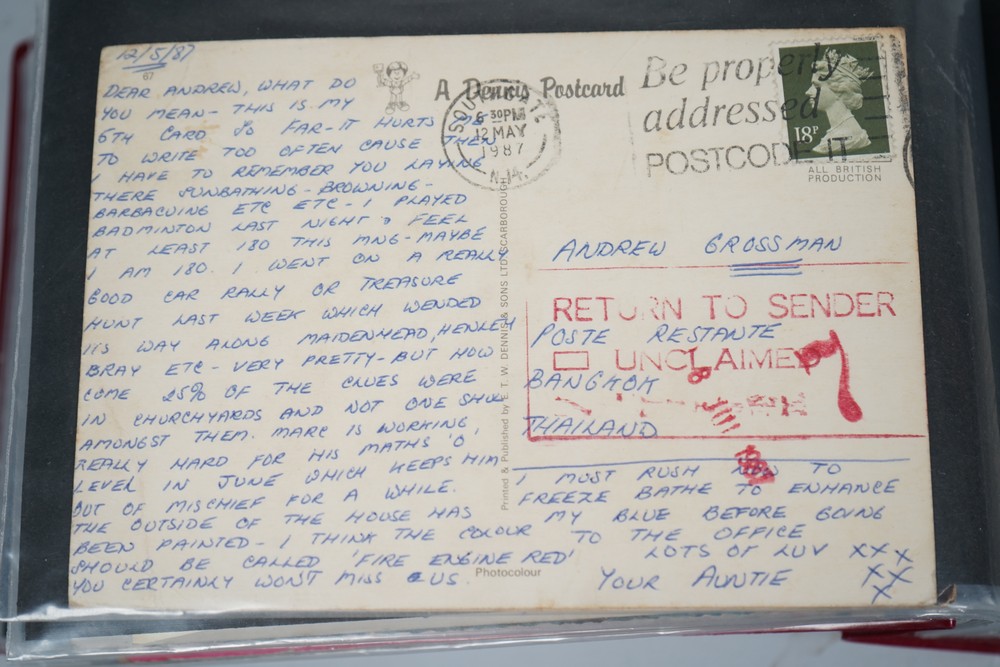 12/5/87
67
DEAR ANDREW, WHAT DO
YOU MEAN - THIS IS MY
6TH CARD SO FAR - IT HURTS ME
TO WRITE TOO OFTEN CAUSE THEN
I HAVE TO REMEMBER YOU LAYING
THERE SUNBATHING - BROWNING -
BARBACUING ETC ETC - I PLAYED
BADMINTON LAST NIGHT & FEEL
AT LEAST 180 THIS MNG - MAYBE
I AM 180. I WENT ON A REALLY
GOOD CAR RALLY OR TREASURE
HUNT LAST WEEK WHICH WENDED
ITS WAY ALONG MAIDENHEAD, HENLEY
BRAY ETC - VERY PRETTY - BUT HOW
COME 25% OF THE CLUES WERE
IN CHURCHYARDS AND NOT ONE SHUL
AMONGST THEM. MARC IS WORKING
REALLY HARD FOR HIS MATHS 'O'
LEVEL IN JUNE WHICH KEEPS HIM
OUT OF MISCHIEF FOR A WHILE.
THE OUTSIDE OF THE HOUSE HAS
BEEN PAINTED - I THINK THE COLOUR
SHOULD BE CALLED 'FIRE ENGINE RED'
YOU CERTAINLY WON'T MISS US.
A Dennis Postcard
SOUTHGATE
6-30PM
12 MAY
1987
N.14.
Be properly
addressed
POSTCODE IT
18P
ALL BRITISH
PRODUCTION
Printed & Published by E. T. W. DENNIS & SONS LTD SCARBOROUGH
Photocolour
ANDREW GROSSMAN
RETURN TO SENDER
POSTE RESTANTE
UNCLAIMED
BANGKOK
THAILAND
I MUST RUSH NOW TO
FREEZE BATHE TO ENHANCE
MY BLUE BEFORE GOING
TO THE OFFICE
LOTS OF LUV XXX
YOUR AUNTIE XX
X